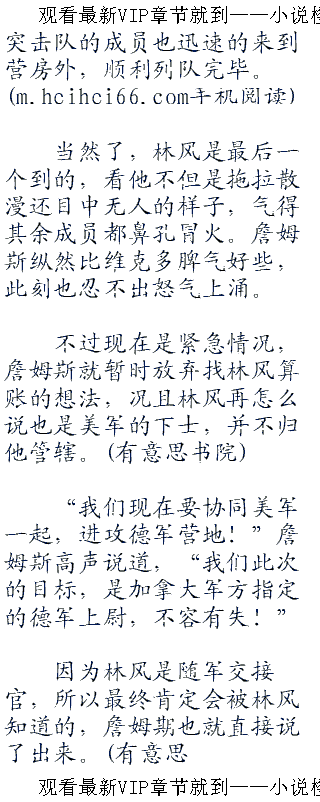 观看最新VIP章节就到——小说检
突击队的成员也迅速的来到
营房外，顺利列队完毕。
(m.hcihci66.com手机阅读)
当然了，林风是最后一
个到的，看他不但是拖拉散
漫还目中无人的样子，气得
其余成员都鼻孔冒火。詹姆
斯纵然比维克多脾气好些，
此刻也忍不住怒气上涌。
不过现在是紧急情况，
詹姆斯就暂时放弃找林风算
账的想法，况且林风再怎么
说也是美军的下士，并不归
他管辖。(有意思书院)
“我们现在要协同美军
一起，进攻德军营地！”詹
姆斯高声说道，“我们此次
的目标，是加拿大军方指定
的德军上尉，不容有失！”
因为林风是随军交接
官，所以最终肯定会被林风
知道的，詹姆斯也就直接说
了出来。(有意思
观看最新VIP章节就到——小说检